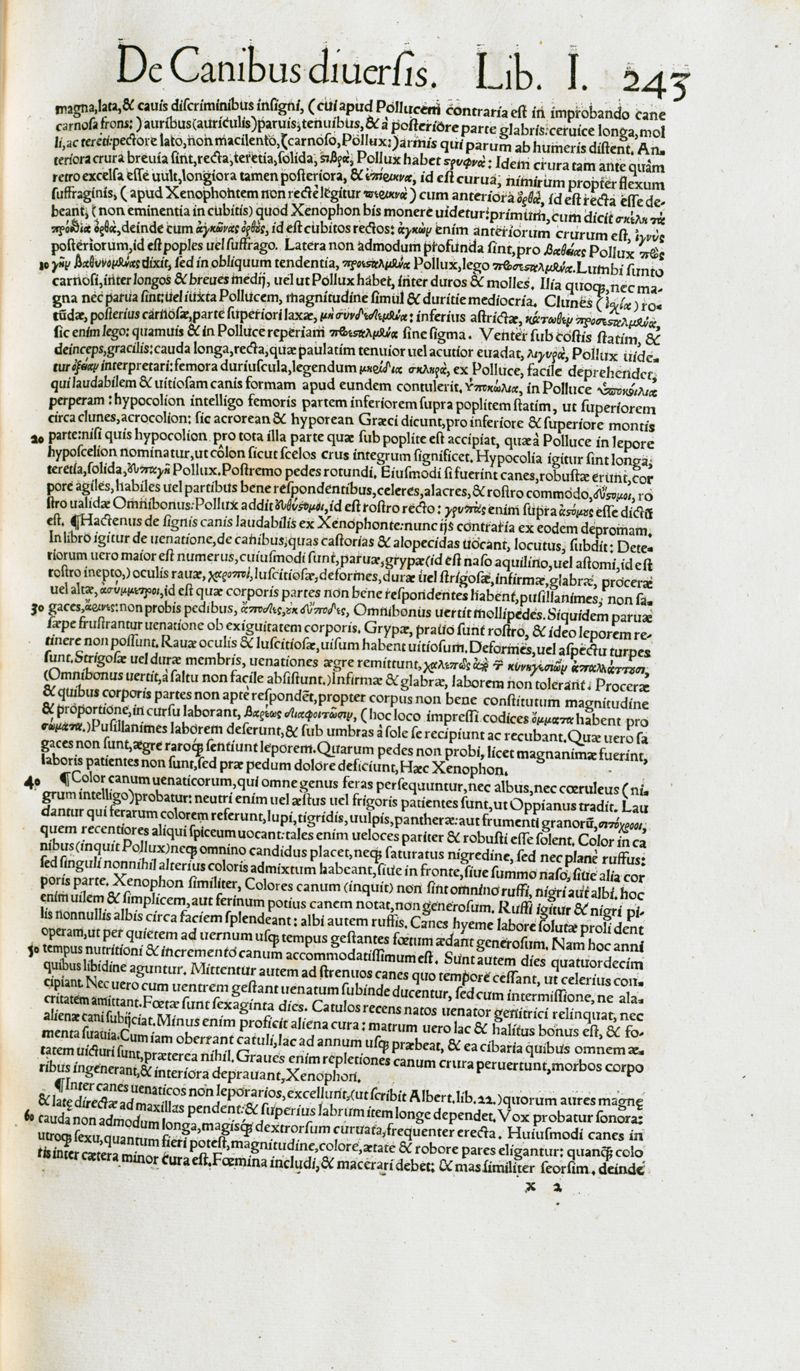 De Canibus diuersis. Lib. I. 243
magna, lata, & cauis discriminibus insigni, (cui apud Pollucem contraria est in improbando cane
carnosa frons:) auribus (auriculis) paruis, tenuibus, & à posteriore parte glabris: ceruice longa, mol
li, ac tereti: pectore lato, non macilento, (carnoso, Pollux:) armis qui parum ab humeris distent. An-
teriora crura breuia sint, recta, teretia, solida, Pollux habet στρυφνά: Idem crura tam ante quàm
retro excelsa esse uult, longiora tamen posteriora, & id est curua, nimirum propter flexum
suffraginis, (apud Xenophontem non recte legitur) cum anteriora ὀρθὰ, id est recta esse de-
beant, (non eminentia in cubitis) quod Xenophon bis monere uidetur: primum, cum dicit σκέλη τὰ
πρόσθια ὀρθὰ, deinde cum ἀγκῶνας ὀρθοὺς, id est cubitos rectos: ἀγκὼν enim anteriorum crurum est, ἰγνὺς
posteriorum, id est poples uel suffrago. Latera non admodum profunda sint, pro βαθείας Pollux
10 dixit, sed in obliquum tendentia, Pollux, lego Lumbi sunto
carnosi, inter longos & breues medij, uel ut Pollux habet, inter duros & molles. Ilia quoq;, nec ma-
gna nec parua sint: uel iuxta Pollucem, magnitudine simul & duritie mediocria. Clunes (ἰσχία) ro-
tũdæ, posterius carnosæ, parte superiori laxæ, inferius astrictæ, κάτωθεν
sic enim lego: quamuis & in Polluce reperiam sine sigma. Venter sub costis statim, &
deinceps, gracilis: cauda longa, recta, quæ paulatim tenuior uel acutior euadat, λιγυρὰ, Pollux uide-
tur interpretari: femora duriuscula, legendum σκληρὰ, ex Polluce, facile deprehendet,
qui laudabilem & uitiosam canis formam apud eundem contulerit. Ὑποκώλια, in Polluce
perperam: hypocolion intelligo femoris partem inferiorem supra poplitem statim, ut superiorem
circa clunes, acrocolion: sic acrorean & hyporean Græci dicunt, pro inferiore & superiore montis
20 parte: nisi quis hypocolion pro tota illa parte quæ sub poplite est accipiat, quæ à Polluce in lepore
hyposcelion nominatur, ut côlon sicut scelos crus integrum significet. Hypocolia igitur sint longa,
teretia, solida, εὐπαγῆ Pollux. Postremo pedes rotundi. Eiusmodi si fuerint canes, robustæ erunt, cor
pore agiles, habiles uel partibus bene respondentibus, celeres, alacres, & rostro commodo, εὔστομοι, ro
stro ualidæ Omnibonus: Pollux addit εὐθύστομοι, id est rostro recto: γρυπὰς enim supra ἀστόμους esse dictũ
est. ¶Hactenus de signis canis laudabilis ex Xenophonte: nunc ijs contraria ex eodem depromam.
In libro igitur de uenatione, de canibus, quas castorias & alopecidas uocant, locutus, subdit: Dete-
riorum uero maior est numerus, cuiusmodi sunt, paruæ, grypæ (id est naso aquilino, uel astomi, id est
rostro inepto,) oculis rauæ, χαροποὶ, luscitiosæ, deformes, duræ uel strigosæ, infirmæ, glabræ, proceræ
uel altæ, ἀσύμμετροι, id est quæ corporis partes non bene respondentes habent, pusillanimes, non sa-
30 gaces, ἄρινες: non probis pedibus, ἄποδες, Omnibonus uertit mollipedes. Siquidem paruæ
sæpe frustrantur uenatione ob exiguitatem corporis. Grypæ, prauo sunt rostro, & ideo leporem re-
tinere non possunt. Rauæ oculis & luscitiosæ, uisum habent uitiosum. Deformes, uel aspectu turpes
sunt. Strigosæ uel duræ membris, uenationes ægre remittunt, χαλεπῶς τ κυνηγεσίων ἀπαλλάττουσι,
(Omnibonus uertit, à saltu non facile absistunt.) Infirmæ & glabræ, laborem non tolerant. Proceræ
& quibus corporis partes non apte respondẽt, propter corpus non bene constitutum magnitudine
& proportione, in cursu laborant, βαρέως διαφοιτῶσιν, (hoc loco impressi codices ὄμματα habent pro
σώματα.) Pusillanimes laborem deserunt, & sub umbras à sole se recipiunt ac recubant. Quæ uero sa
gaces non sunt, ægre raroq; sentiunt leporem. Quarum pedes non probi, licet magnanimæ fuerint,
laboris patientes non sunt, sed præ pedum dolore deficiunt, Hæc Xenophon.
40 ¶Color canum uenaticorum, qui omne genus feras persequuntur, nec albus, nec cœruleus (ni-
grum intelligo) probatur: neutri enim uel æstus uel frigoris patientes sunt, ut Oppianus tradit. Lau
dantur qui ferarum colorem referunt, lupi, tigridis, uulpis, pantheræ: aut frumenti granorũ, σιτόχροοι,
quem recentiores aliqui spiceum uocant: tales enim ueloces pariter & robusti esse solent. Color in ca
nibus (inquit Pollux) neq; omnino candidus placet, neq; saturatus nigredine, sed nec plane ruffus:
sed singuli nonnihil alterius coloris admixtum habeant, siue in fronte, siue summo naso, siue alia cor
poris parte. Xenophon similiter, Colores canum (inquit) non sint omnino ruffi, nigri aut albi, hoc
enim uilem & simplicem, aut ferinum potius canem notat, non generosum. Ruffi igitur & nigri pi-
lis nonnullis albis circa faciem splendeant: albi autem ruffis. Canes hyeme labore solutæ proli dent
operam, ut per quietem ad uernum usq; tempus gestantes fœtum ædant generosum. Nam hoc anni
50 tempus nutritioni & incremento canum accommodatissimum est. Sunt autem dies quatuordecim
quibus libidine aguntur. Mittentur autem ad strenuos canes quo tempore cessant, ut celerius con-
cipiant. Nec uero cum uentrem gestant uenatum subinde ducentur, sed cum intermissione, ne ala-
critatem amittant. Fœtæ sunt sexaginta dies. Catulos recens natos uenator genitrici relinquat, nec
alienæ cani subijciat. Minus enim proficit aliena cura: matrum uero lac & halitus bonus est, & fo-
menta suauia. Cum iam oberrant catuli, lac ad annum usq; præbeat, & ea cibaria quibus omnem æ-
tatem uicturi sunt, præterea nihil. Graues enim repletiones canum crura peruertunt, morbos corpo
ribus ingenerant, & interiora deprauant, Xenophon.
¶Inter canes uenaticos non leporarios, excellunt, (ut scribit Albert. lib. 22.) quorum aures magnę
& latę directæ ad maxillas pendent: & superius labrum item longe dependet. Vox probatur sonora:
60 cauda non admodum longa, magisq; dextrorsum curuata, frequenter erecta. Huiusmodi canes in
utroq; sexu, quantum fieri potest, magnitudine, colore, ætate & robore pares eligantur: quanq̃ colo
ris inter cætera minor cura est. Fœmina includi, & macerari debet: & mas similiter seorsim. deinde
x 2